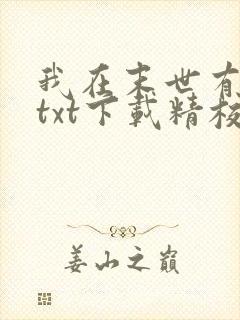 我在末世有
txt下載精校
姜山之巔